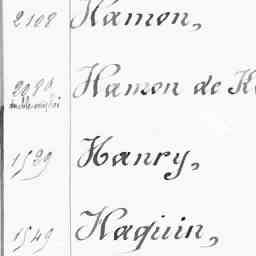 2108 Hamon,
2080 Hamon de K
1529 Hanry,
1549 Haquin,